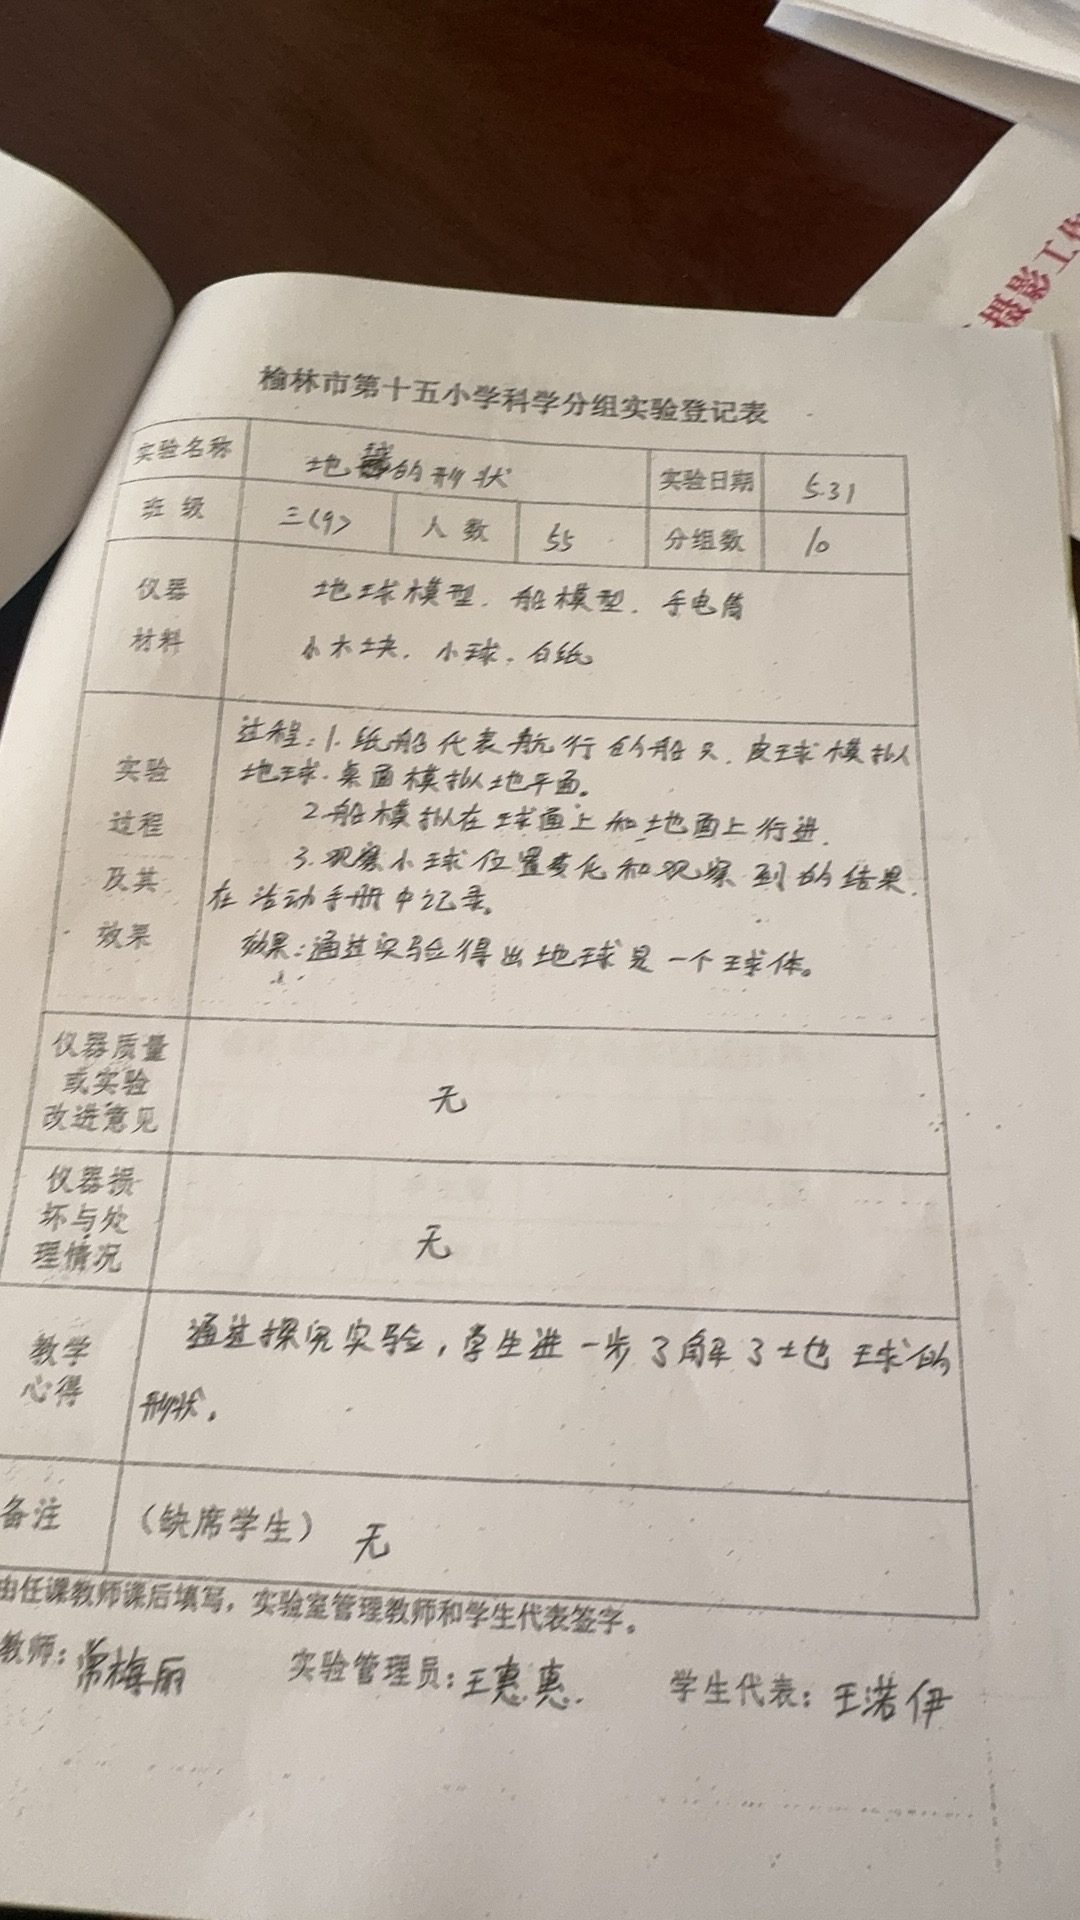 摄影工作
榆林市第十五小学科学分组实验登记表
实验名称 地球的形状 实验日期 5.31
班级 三(9) 人数 55 分组数 10
仪器 地球模型、船模型、手电筒
材料 小木块、小球、白纸
过程:1.纸船代表航行的船只、皮球模拟
实验 地球、桌面模拟地平面。
过程 2.船模拟在球面上和地面上行进.
及其 3.观察小球位置变化和观察到的结果.
在活动手册中记录。
效果 效果:通过实验得出地球是一个球体。
仪器质量
或实验 无
改进意见
仪器损
坏与处 无
理情况
教学 通过探究实验,学生进一步了解了地球的
心得 形状。
备注 (缺席学生) 无
由任课教师课后填写,实验室管理教师和学生代表签字。
教师:常梅丽 实验管理员:王惠惠. 学生代表:王诺伊